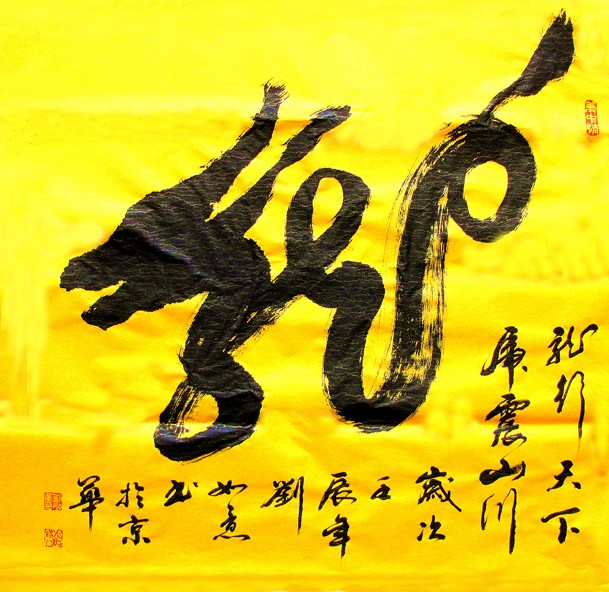 龍
龍行天下
虎震山川
歲次
壬
辰年
劉
如意
书
於京
華